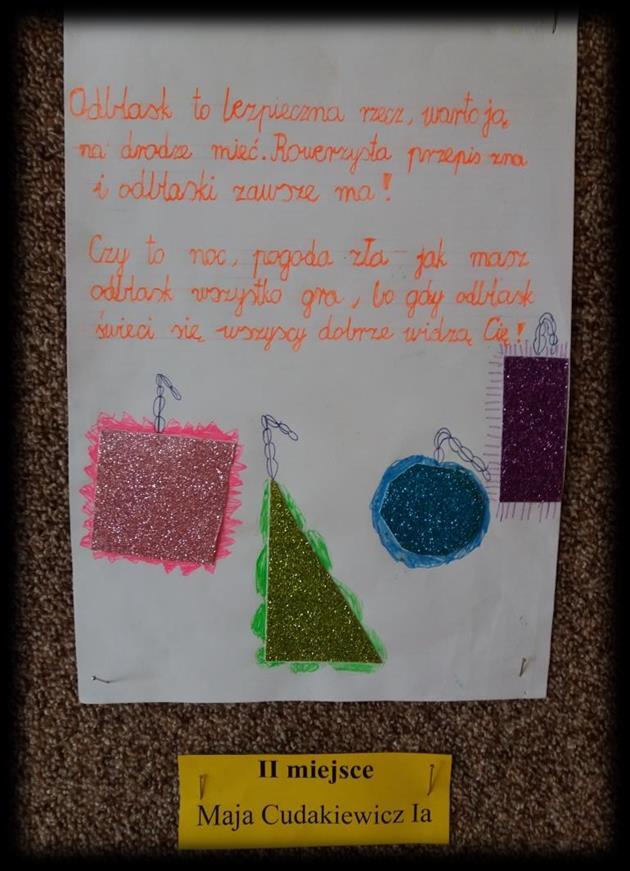 Odblask to bezpieczna rzecz, warto ją
na drodze mieć. Rowerzysta przepis zna
i odblaski zawsze ma!
Czy to noc, pogoda zła - jak masz
odblask wszystko gra, bo gdy odblask
świeci się, wszyscy dobrze widzą Cię!
II miejsce
Maja Cudakiewicz Ia